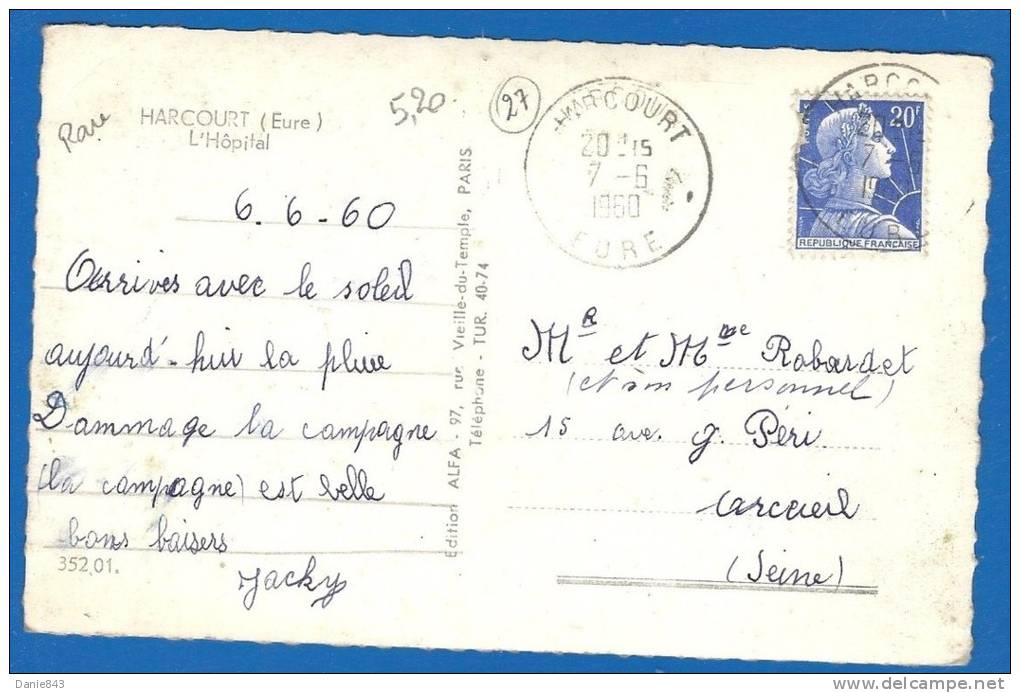 Rare
HARCOURT (Eure)
L'Hôpital
5,20
27
HARCOURT
20 15
7-6
1960
EURE
HARCO
20F
7-6
19
EUR
REPUBLIQUE FRANÇAISE
6.6-60
Arrivés avec le soleil
aujourd'-hui la pluie
Dammage la campagne
(la campagne) est belle
bons baisers
Jacky
352.01.
Edition ALFA - 97, rue Vieille-du-Temple, PARIS
Téléphone - TUR. 40-74
MR et Mme Robardet
(et son personnel)
15 ave. g. Péri
Carcueil
(Seine)
Daniel843
www.delcampe.net